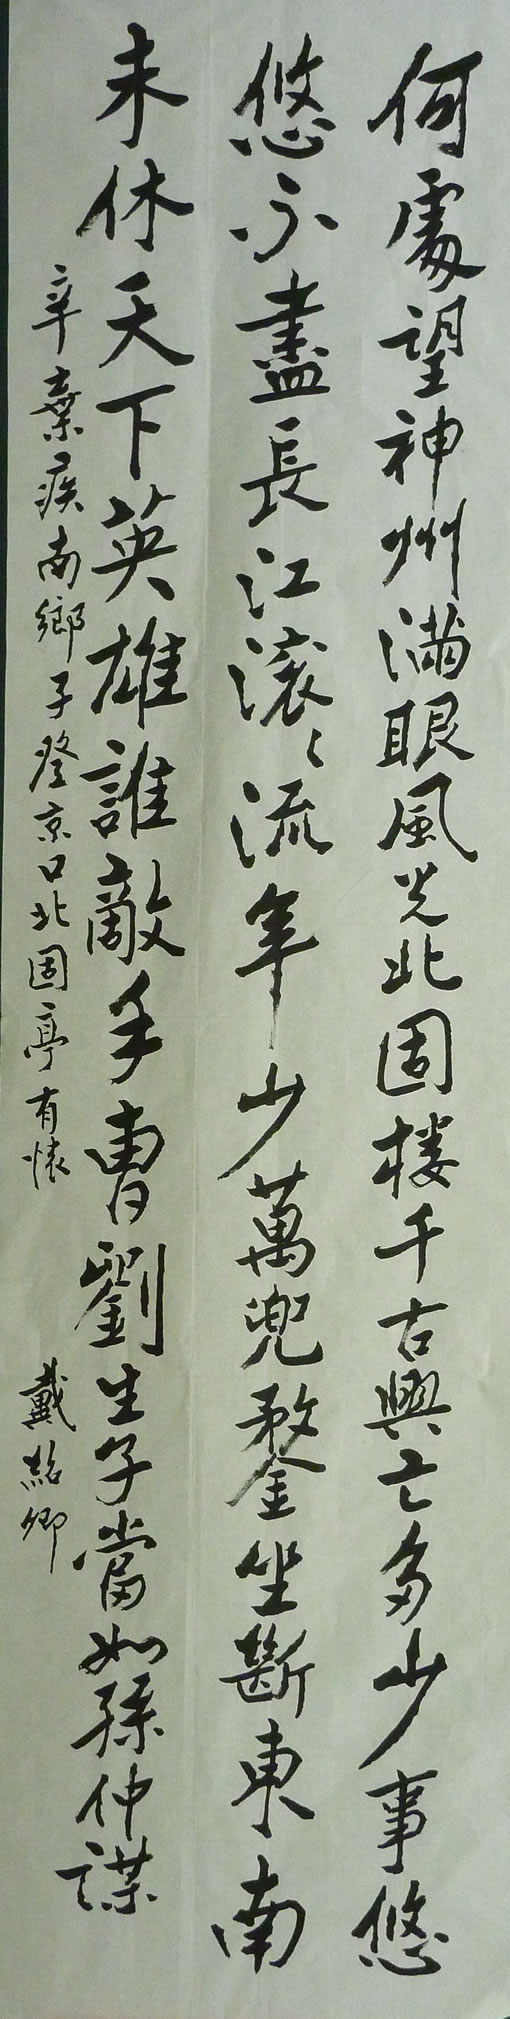 何處望神州滿眼風光北固楼千古興亡多少事悠
悠不盡長江滾〻流年少萬兜鍪坐斷東南
未休天下英雄誰敵手曹劉生子當如孫仲謀
辛棄疾南鄉子登京口北固亭有懷
戴紹卿